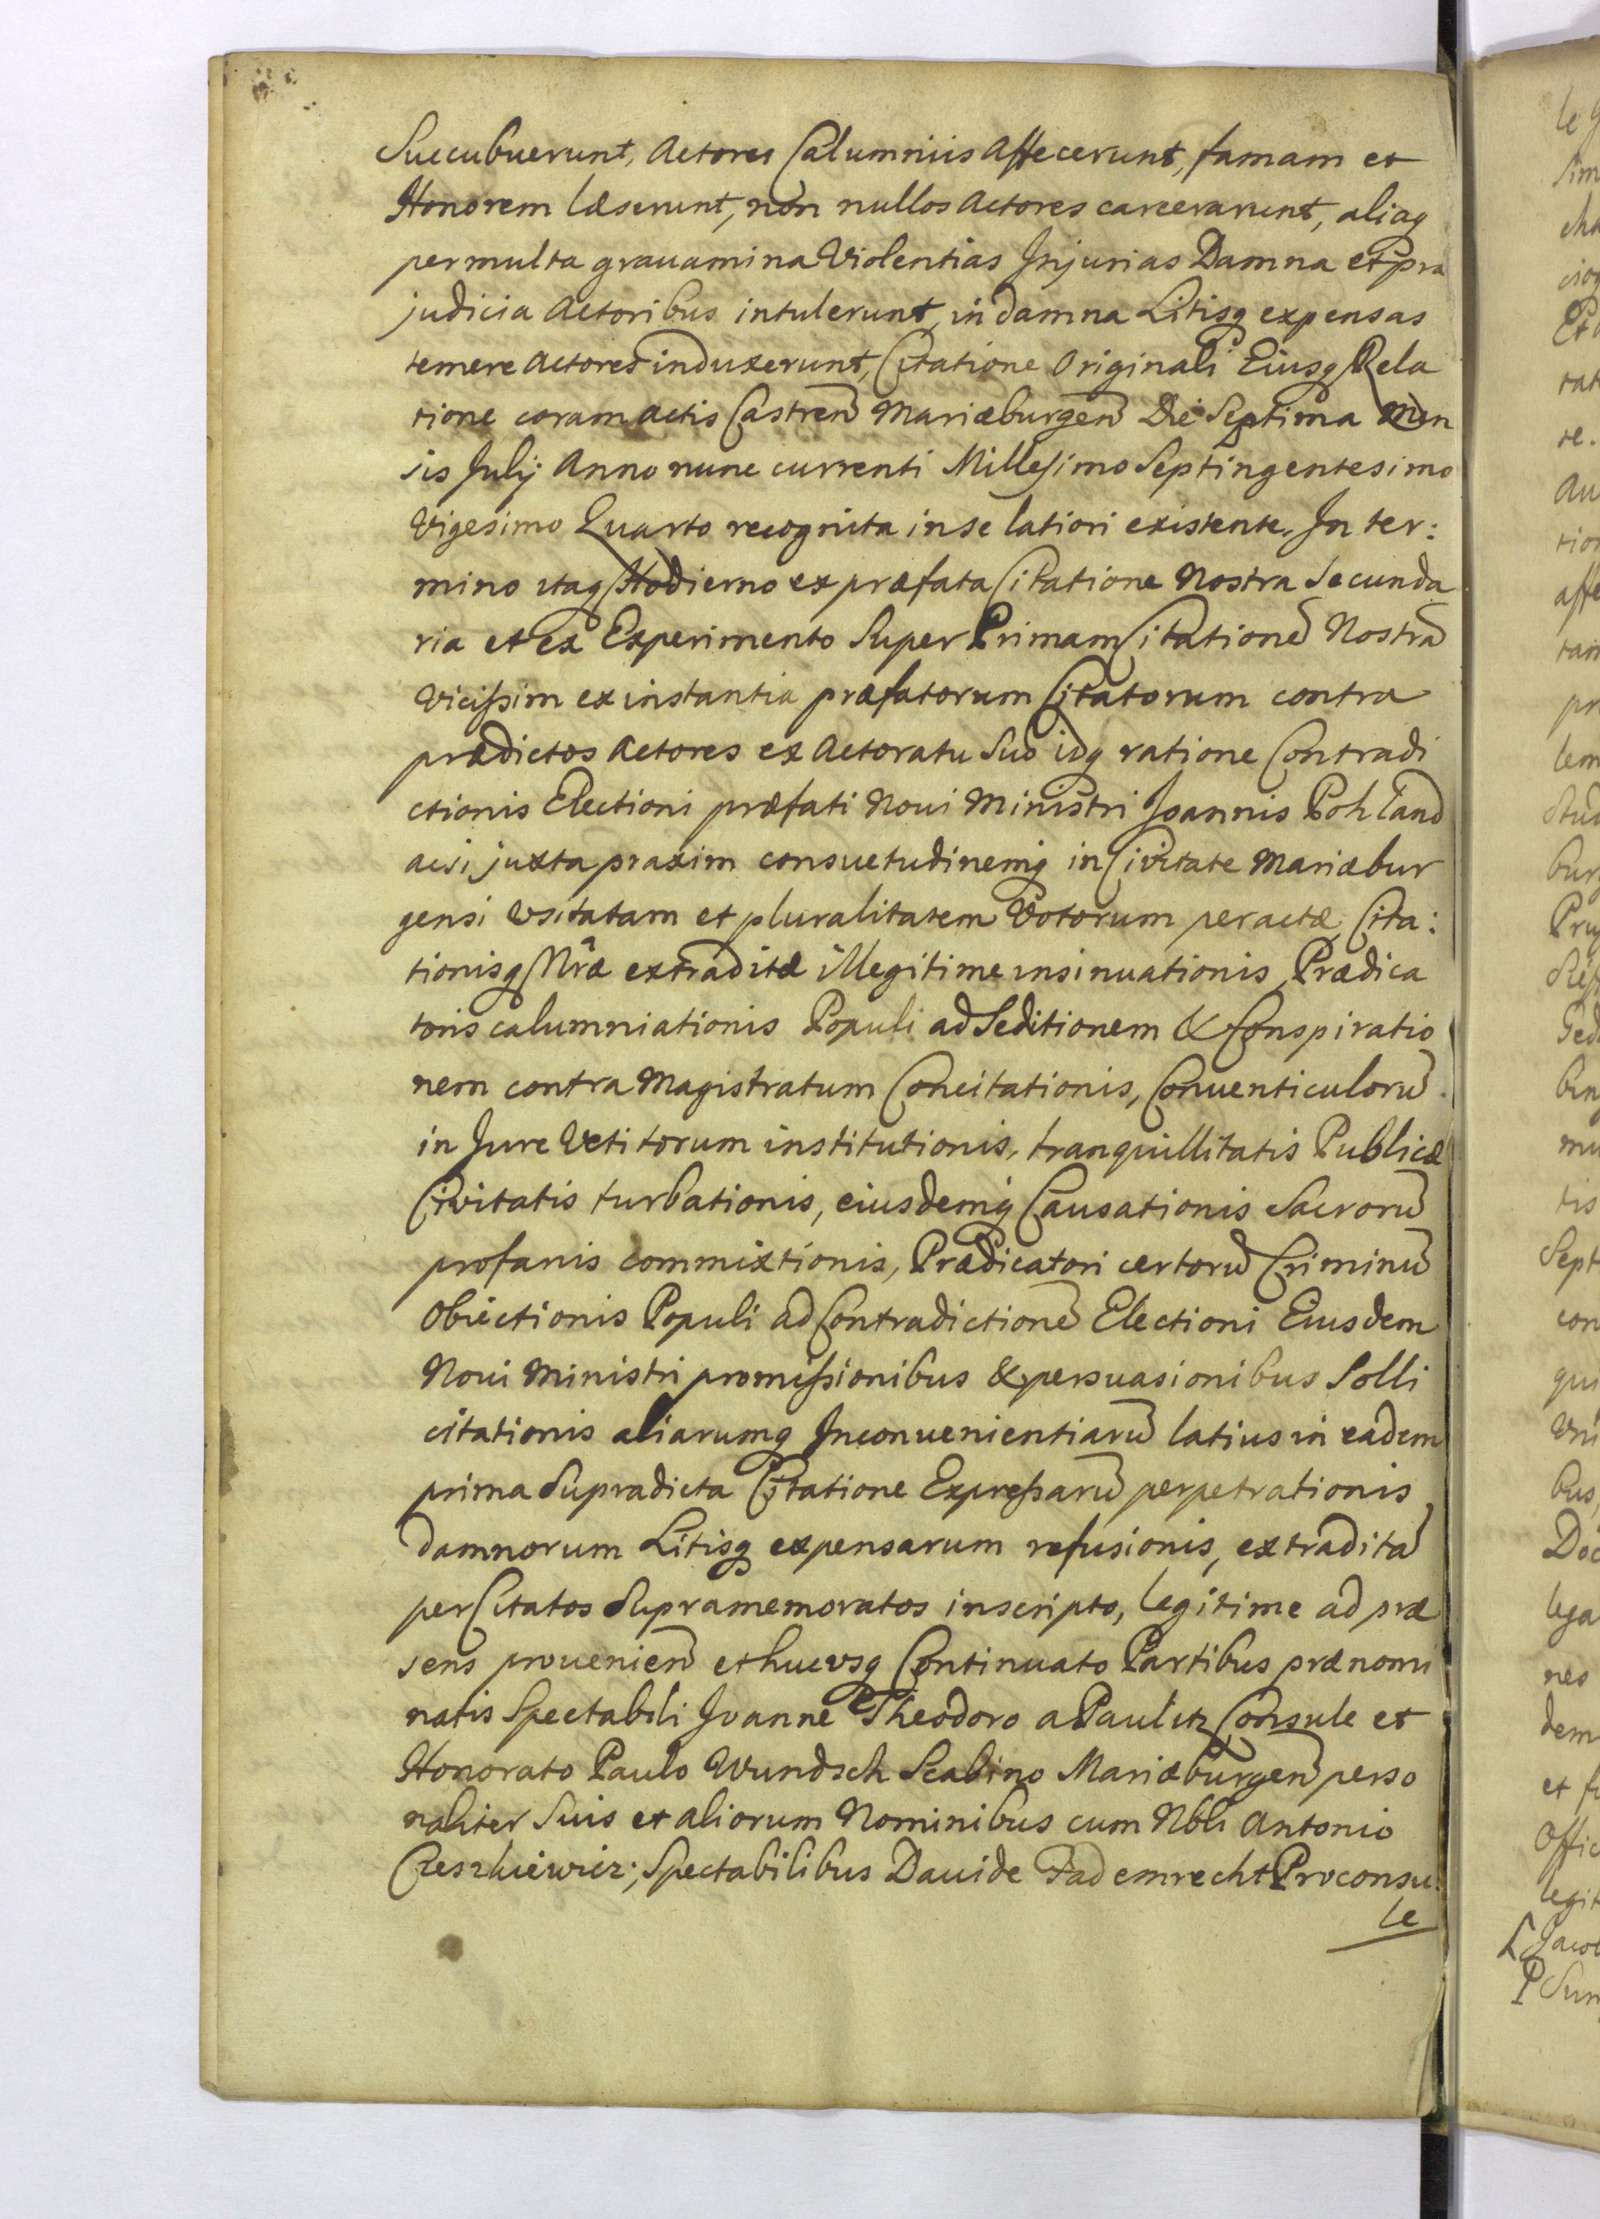 Succubuerunt, Actores Calumniis Affecerunt, famam et
Honorem læserunt, non nullos Actores carcerarunt, aliaq
permulta grauamina Violentias Injurias Damna et præ
judicia Actoribus intulerunt, in damna Litisq expensas
temere Actores induxerunt, Citatione Originali Eiusq Rela
tione coram actis Castren Mariæburgen Die Septima Men
sis Julij Anno nunc currenti Millesimo Septingentesimo
Vigesimo Quarto recognita in se latiori existente. In ter:
mino itaq Hodierno ex præfata Citatione Nostra Secunda
ria et ex Experimento Super Primam Citatione Nostra
Vicissim ex instantia præfatorum Citatorum contra
prædictos Actores ex Actoratu Suo idq ratione Contradi
ctionis Electioni præfati Noui Ministri Joannis Pohland
acsi juxta praxim consuetudinemq in Civitate Mariæbur
gensi Vsitatam et pluralitatem Votorum peractæ, Cita:
tionisq Nræ extraditæ illegitime insinuationis, Prædica
toris calumniationis Populi ad Seditionem & Conspiratio
nem contra Magistratum Concitationis, Conuenticuloru
in Jure Vetitorum institutionis, tranquillitatis Publicæ
Civitatis turbationis, eiusdemq Causationis Sacroru
profanis commixtionis, Prædicatori certoru Criminu
Obiectionis Populi ad Contradictione Electioni Eiusdem
Noui Ministri promissionibus & persuasionibus Solli
citationis aliarumq Inconuenientiaru latius in eadem
prima Supradicta Citatione Expressaru perpetrationis
damnorum Litisq expensarum refusionis, extradita
per Citatos Supramemoratos inscripto, legitime ad præ
sens prouenien et hucvsq Continuato Partibus prænomi
natis Spectabili Joanne Theodoro a Paulitz Consule et
Honorato Paulo Wundsch Scabino Mariæburgen perso
naliter Suis et aliorum Nominibus cum Nbli Antonio
Czeszkiewicz; Spectabilibus Dauide Fademrecht Proconsu
le